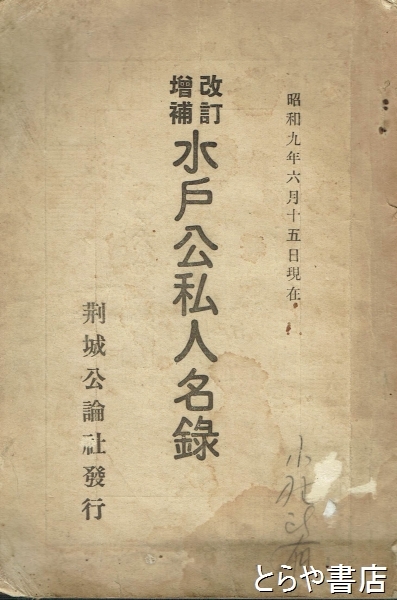 昭和九年六月十五日現在
改訂
增補
水戶公私人名錄
荆城公論社發行
とらや書店